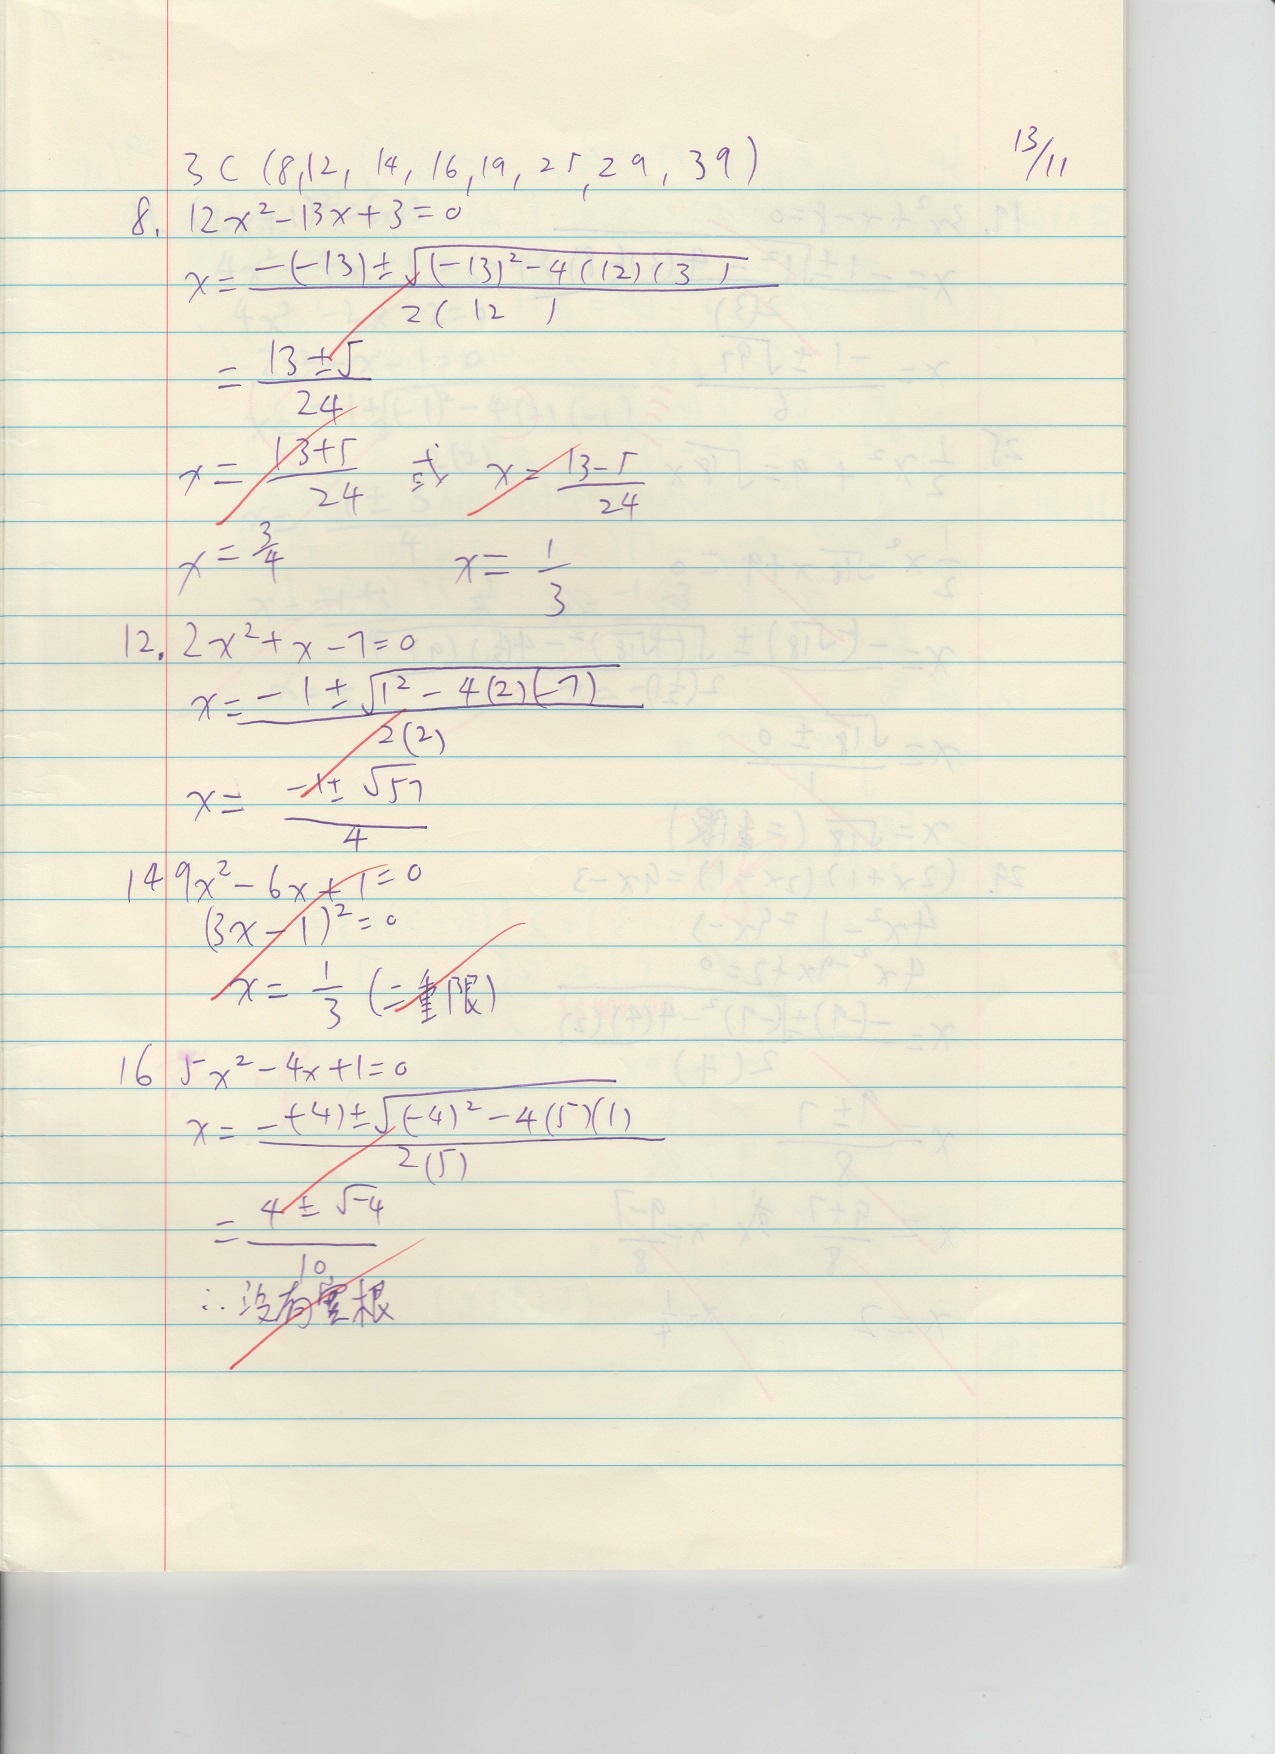 3C (8,12, 14, 16,19, 25,29, 39)
13/11
8. 12x²-13x+3=0
x= -(-13)±√(-13)²-4(12)(3)
2(12)
= 13±5
24
x= 13+5 或 x= 13-5
24 24
x=3/4 x=1/3
12. 2x²+x-7=0
x= -1±√1²-4(2)(-7)
2(2)
x= -1±√57
4
14 9x²-6x+1=0
(3x-1)²=0
x= 1/3 (二重限)
16 5x²-4x+1=0
x= -(-4)±√(-4)²-4(5)(1)
2(5)
= 4±√-4
10
∴沒有實根